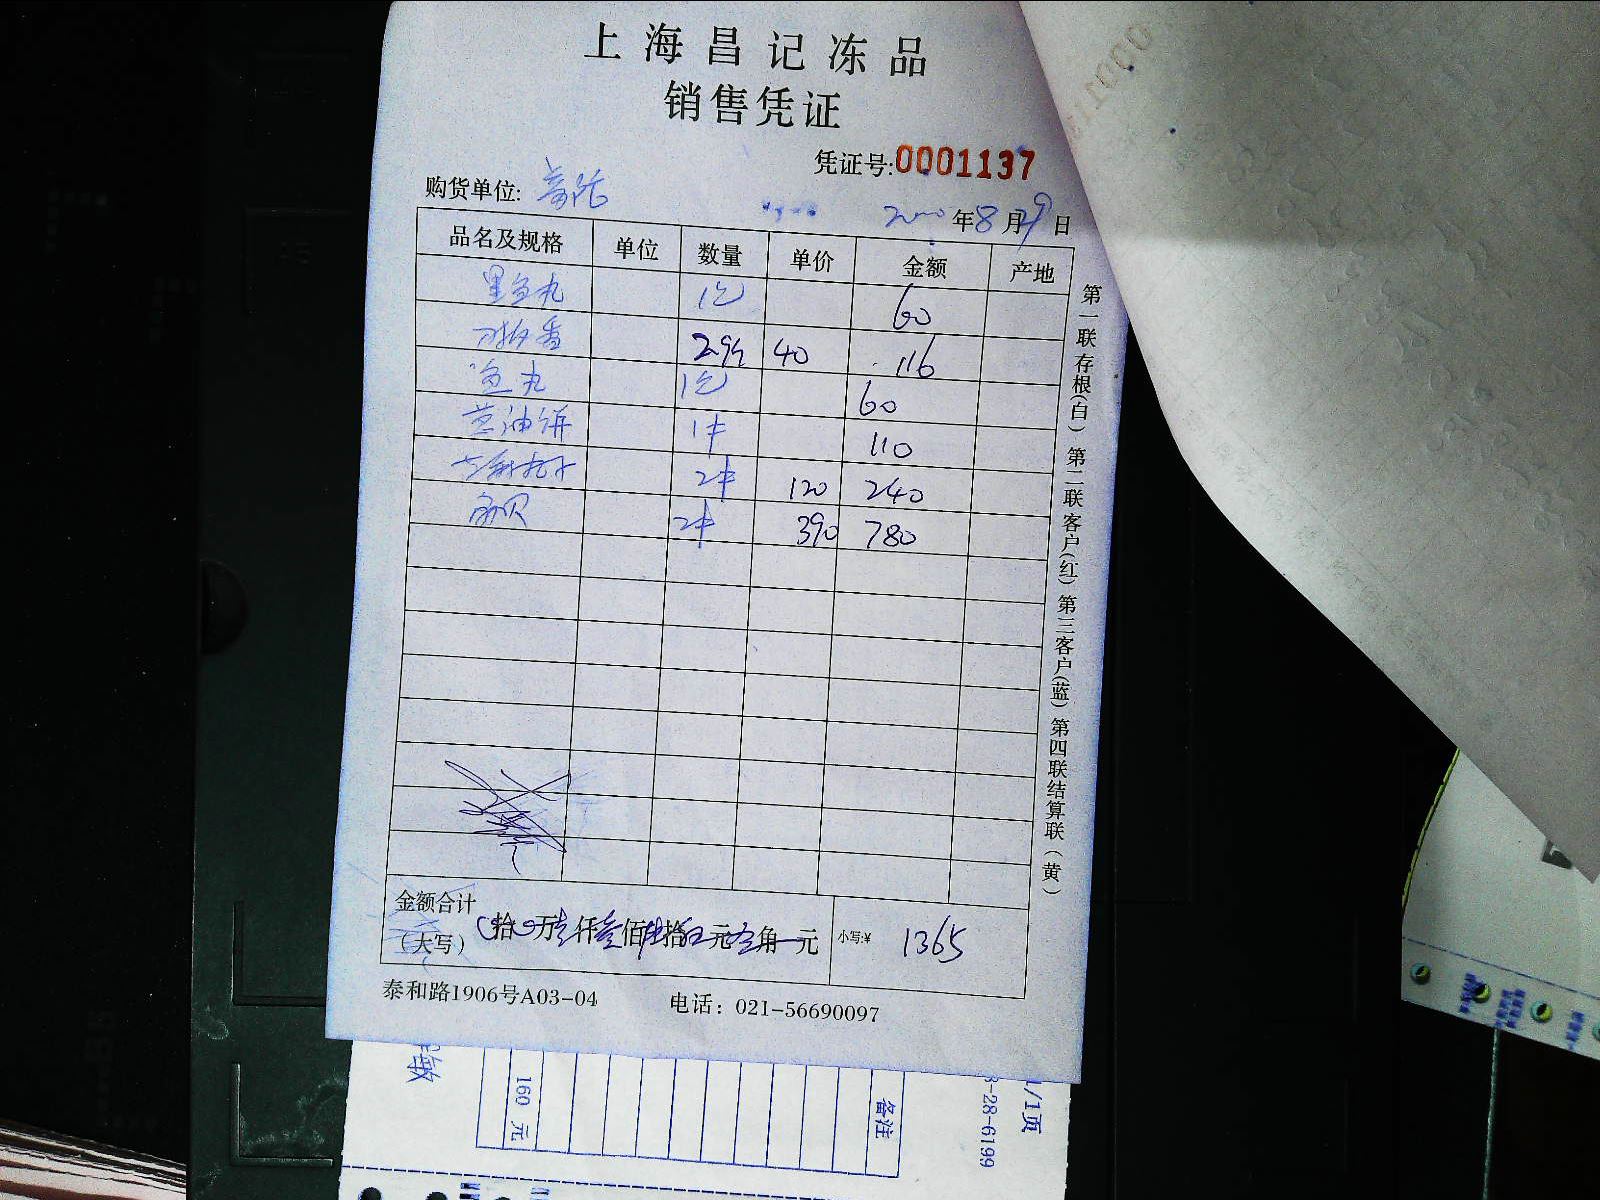 上海昌记冻品
销售凭证
凭证号:0001137
购货单位:
年8月29日
品名及规格 单位 数量 单价 金额 产地
墨鱼丸 1包 60
40 116
鱼丸 1包 60
葱油饼 1件 110
2件 120 240
2件 390 780
金额合计
(大写) 拾 万壹仟叁佰陆拾伍元 角 元 小写:¥ 1365
泰和路1906号A03-04 电话：021-56690097
第一联存根(白) 第二联客户(红) 第三客户(蓝) 第四联结算联(黄)
敏
160 元
备注
-28-6199
1/1页